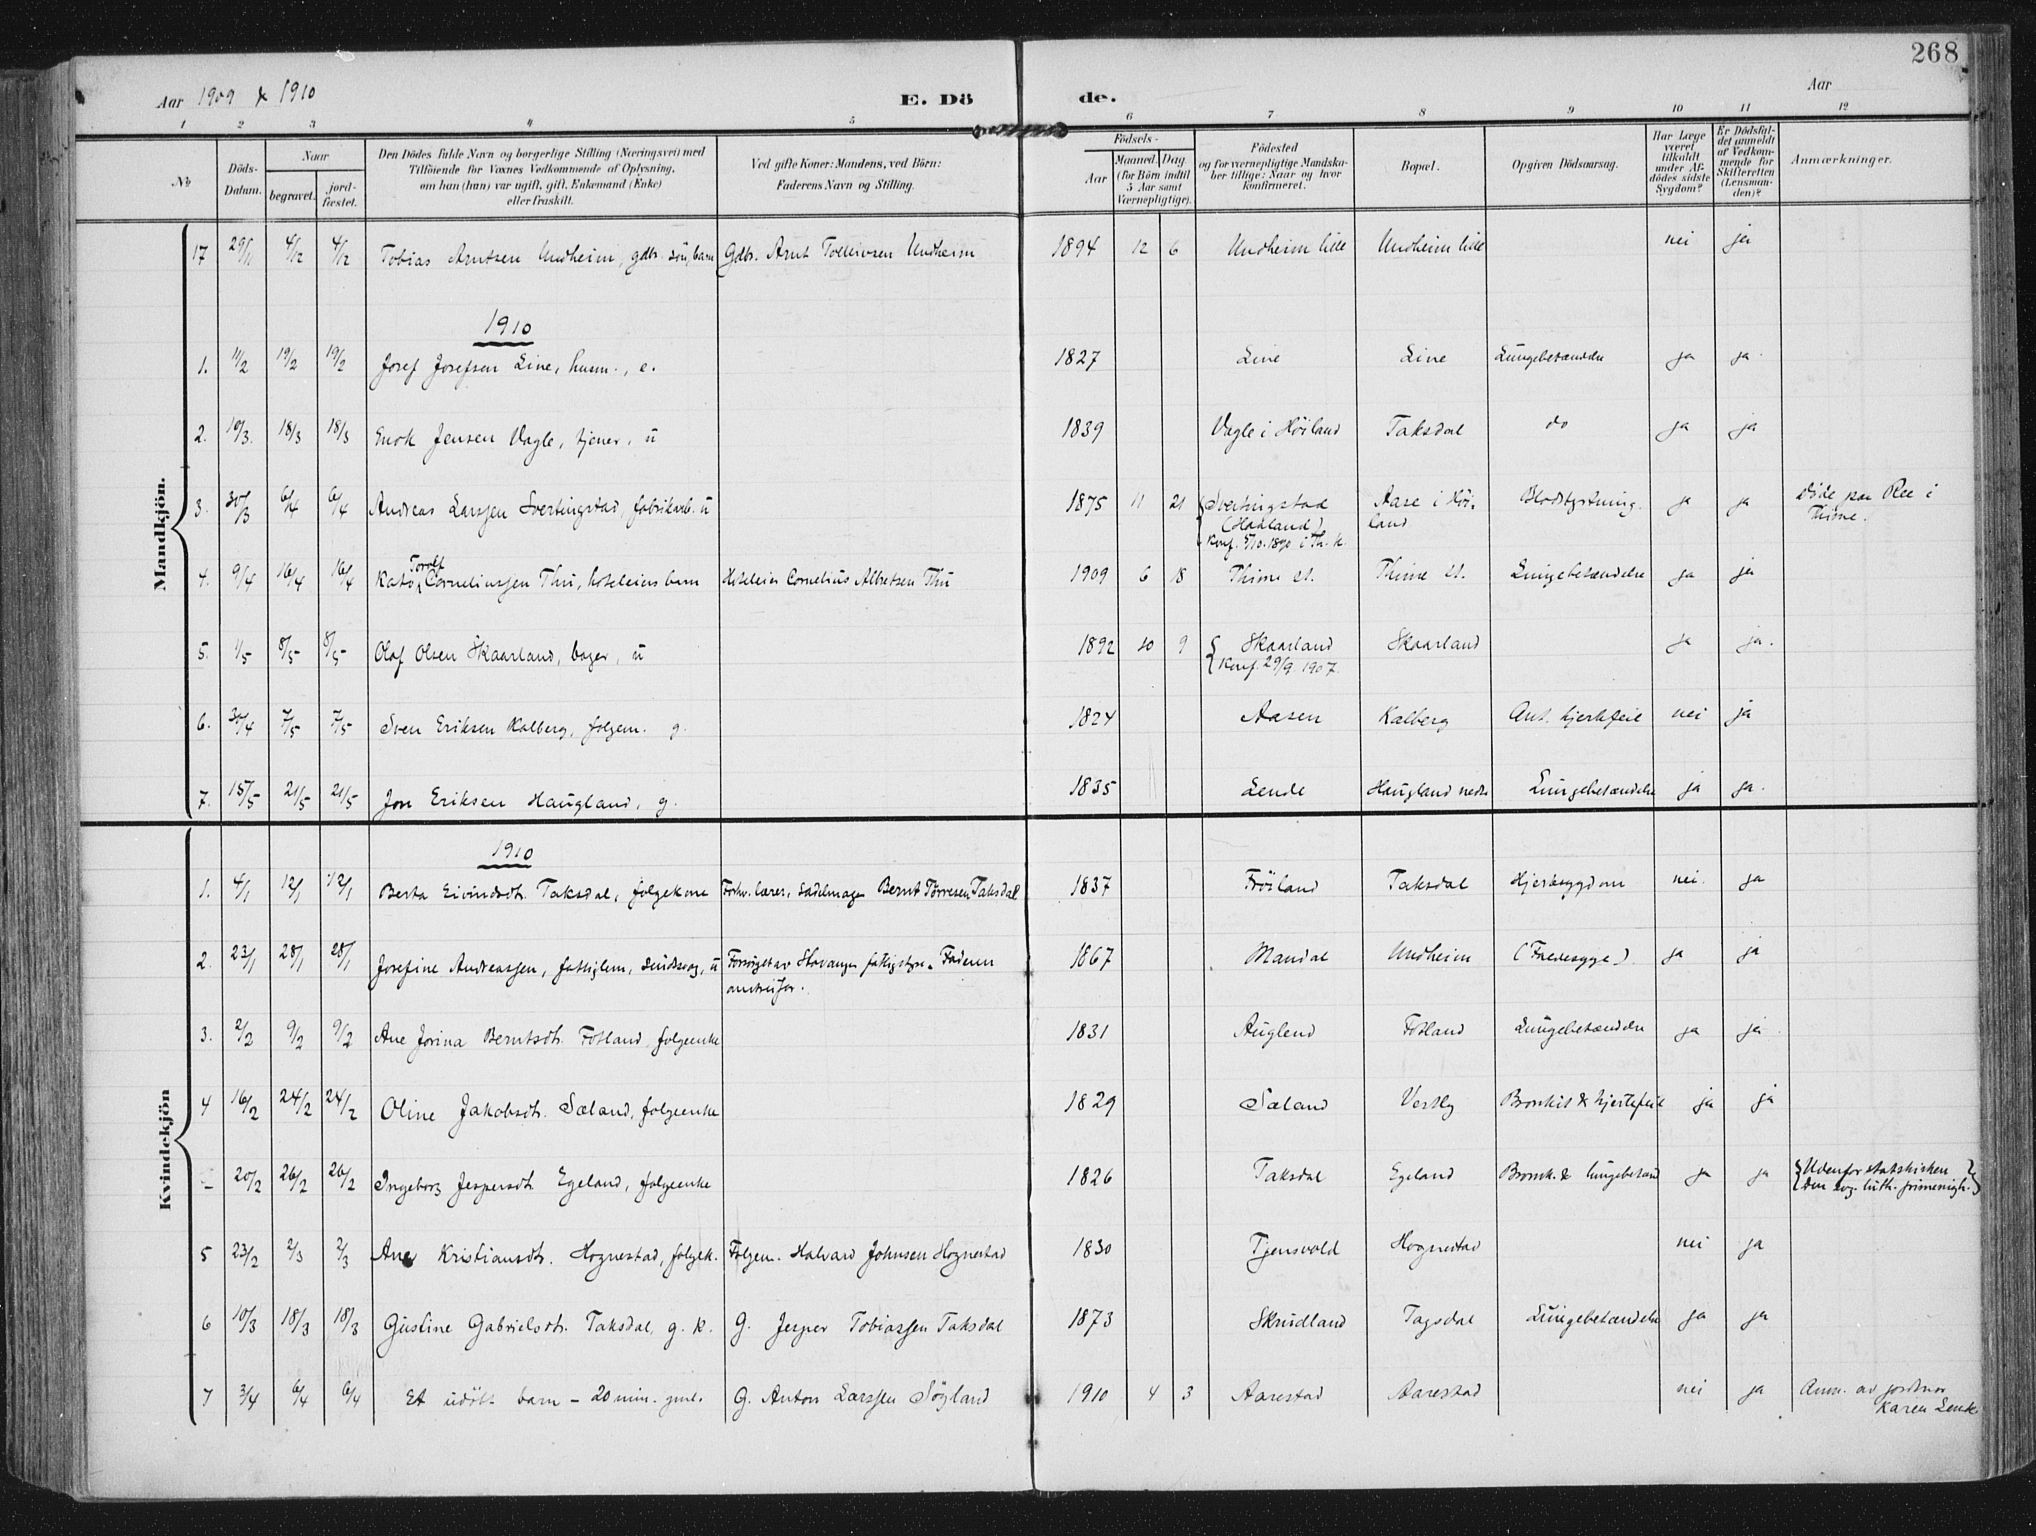 268
Aar 1909 & 1910
E. Dö de.
Aar
1 2 3 4 5 6 7 8 9 10 11 12
No
Döds-Datum.
Naar
begravet.
jord-fæstet.
Den Dödes fulde Navn og borgerlige Stilling (Næringsvei) med
Tilföiende for Voxnes Vedkommende af Oplysning,
om han (hun) var ugift, gift, Enkemand (Enke)
eller fraskilt.
Ved gifte Koner: Mandens, ved Börn:
Faderens Navn og Stilling.
Födsels-
Aar
Maaned. Dag.
(for Börn indtil
5 Aar samt
Værnepligtige).
Födested
og for værnepligtige Mandska-
ber tillige: Naar og hvor
konfirmeret.
Bopæl.
Opgiven Dödsaarsag.
Har Læge
været
tilkaldt
under Af-
dödes sidste
Sygdom?
Er Dödsfal-
det anmeldt
af Vedkom-
mende for
Skifteretten
(Lensman-
den)?
Anmærkninger.
Mandkjön.
17 29/11 4/12 4/12 Tobias Arntsen Undheim, gdbr. sön, barn Gdbr. Arnt Tolleivsen Undheim 1894 12 6 Undheim lille Undheim lille nei ja
1910
1. 11/2 19/2 19/2 Josef Josefsen Line, husm., e. 1827 Line Line Lungebetændelse ja ja
2. 10/3. 18/3 18/3 Enok Jensen Vagle, tjener, u 1839 Vagle i Höiland Taksdal do ja ja
3. 30/3 6/4 6/4 Andreas Larssen Svertingstad, fabrikarb. u 1875 11 21 Svertingstad Aase i Höi- Blodstyrtning. ja ja Döde paa Ree i
(Hodland) land Thime.
Konf. 5/10. 1890 i Th. k.
Torolf
4. 9/4 16/4 16/4 Kato Corneliussen Thu, hoteleiers barn Hoteleier Cornelius Albretsen Thu 1909 6 18 Thime st. Thime st. Lungebetændelse ja ja
5. 1/5 8/5 8/5 Olaf Olsen Skaarland, bager, u 1892 10 9 Skaarland Skaarland ja ja.
Konf. 29/9. 1907.
6. 30/4 7/5 7/5 Sven Eriksen Kalberg, folgem. g. 1824 Aasen Kalberg Ant. hjertefeil nei ja
7. 15/5 21/5 21/5 Jon Eriksen Haugland, g. 1835 Lende Haugland nedre Lungebetændelse ja ja.
Kvindekjön
1910
1. 4/1 12/1 12/1 Berta Eivindsdt. Taksdal, folgekone Forhv. lærer, sadelmager Bernt Torresen Taksdal 1837 Fröiland Taksdal Hjertesygdom nei. ja
2. 23/1 28/1 28/1 Josefine Andreassen, fattiglem, sindssvag, u Forsörget av Stavanger fattigstyre. Faderen 1867 Mandal Undheim ja ja
3. 2/2 9/2 9/2 Ane Jorina Berntsdt. Fotland, folgeenke 1831 Auglend Fotland Lungebetændelse ja ja
4 16/2 24/2 24/2 Oline Jakobsdt. Sæland, folgeenke 1829 Sæland Vestly Bronkit & hjertefeil ja ja
- 20/2 26/2 26/2 Ingeborg Jespersdt. Egeland, folgeenke 1826 Taksdal Egeland Bronk. & lungebetænd ja ja Udenfor statskirken
Den evg. luth. frimenigh.
5 23/2 2/3 2/3 Ane Kristiansdt. Hognestad, folgek. Folgem. Halvard Johnsen Hognestad 1830 Tjensvold Hognestad nei ja
6 10/3 18/3 18/3 Gustine Gabrielsdt. Taksdal, g. k. G. Jesper Tobiassen Taksdal 1873 Skrudland Tagsdal Lungebetændelse ja ja
7 3/4 6/4 6/4 Et udöbt barn - 20 min. gml. G. Anton Larssen Söyland 1910 4 3 Aarestad Aarestad nei ja Anm. av jordmor
Karen Lende